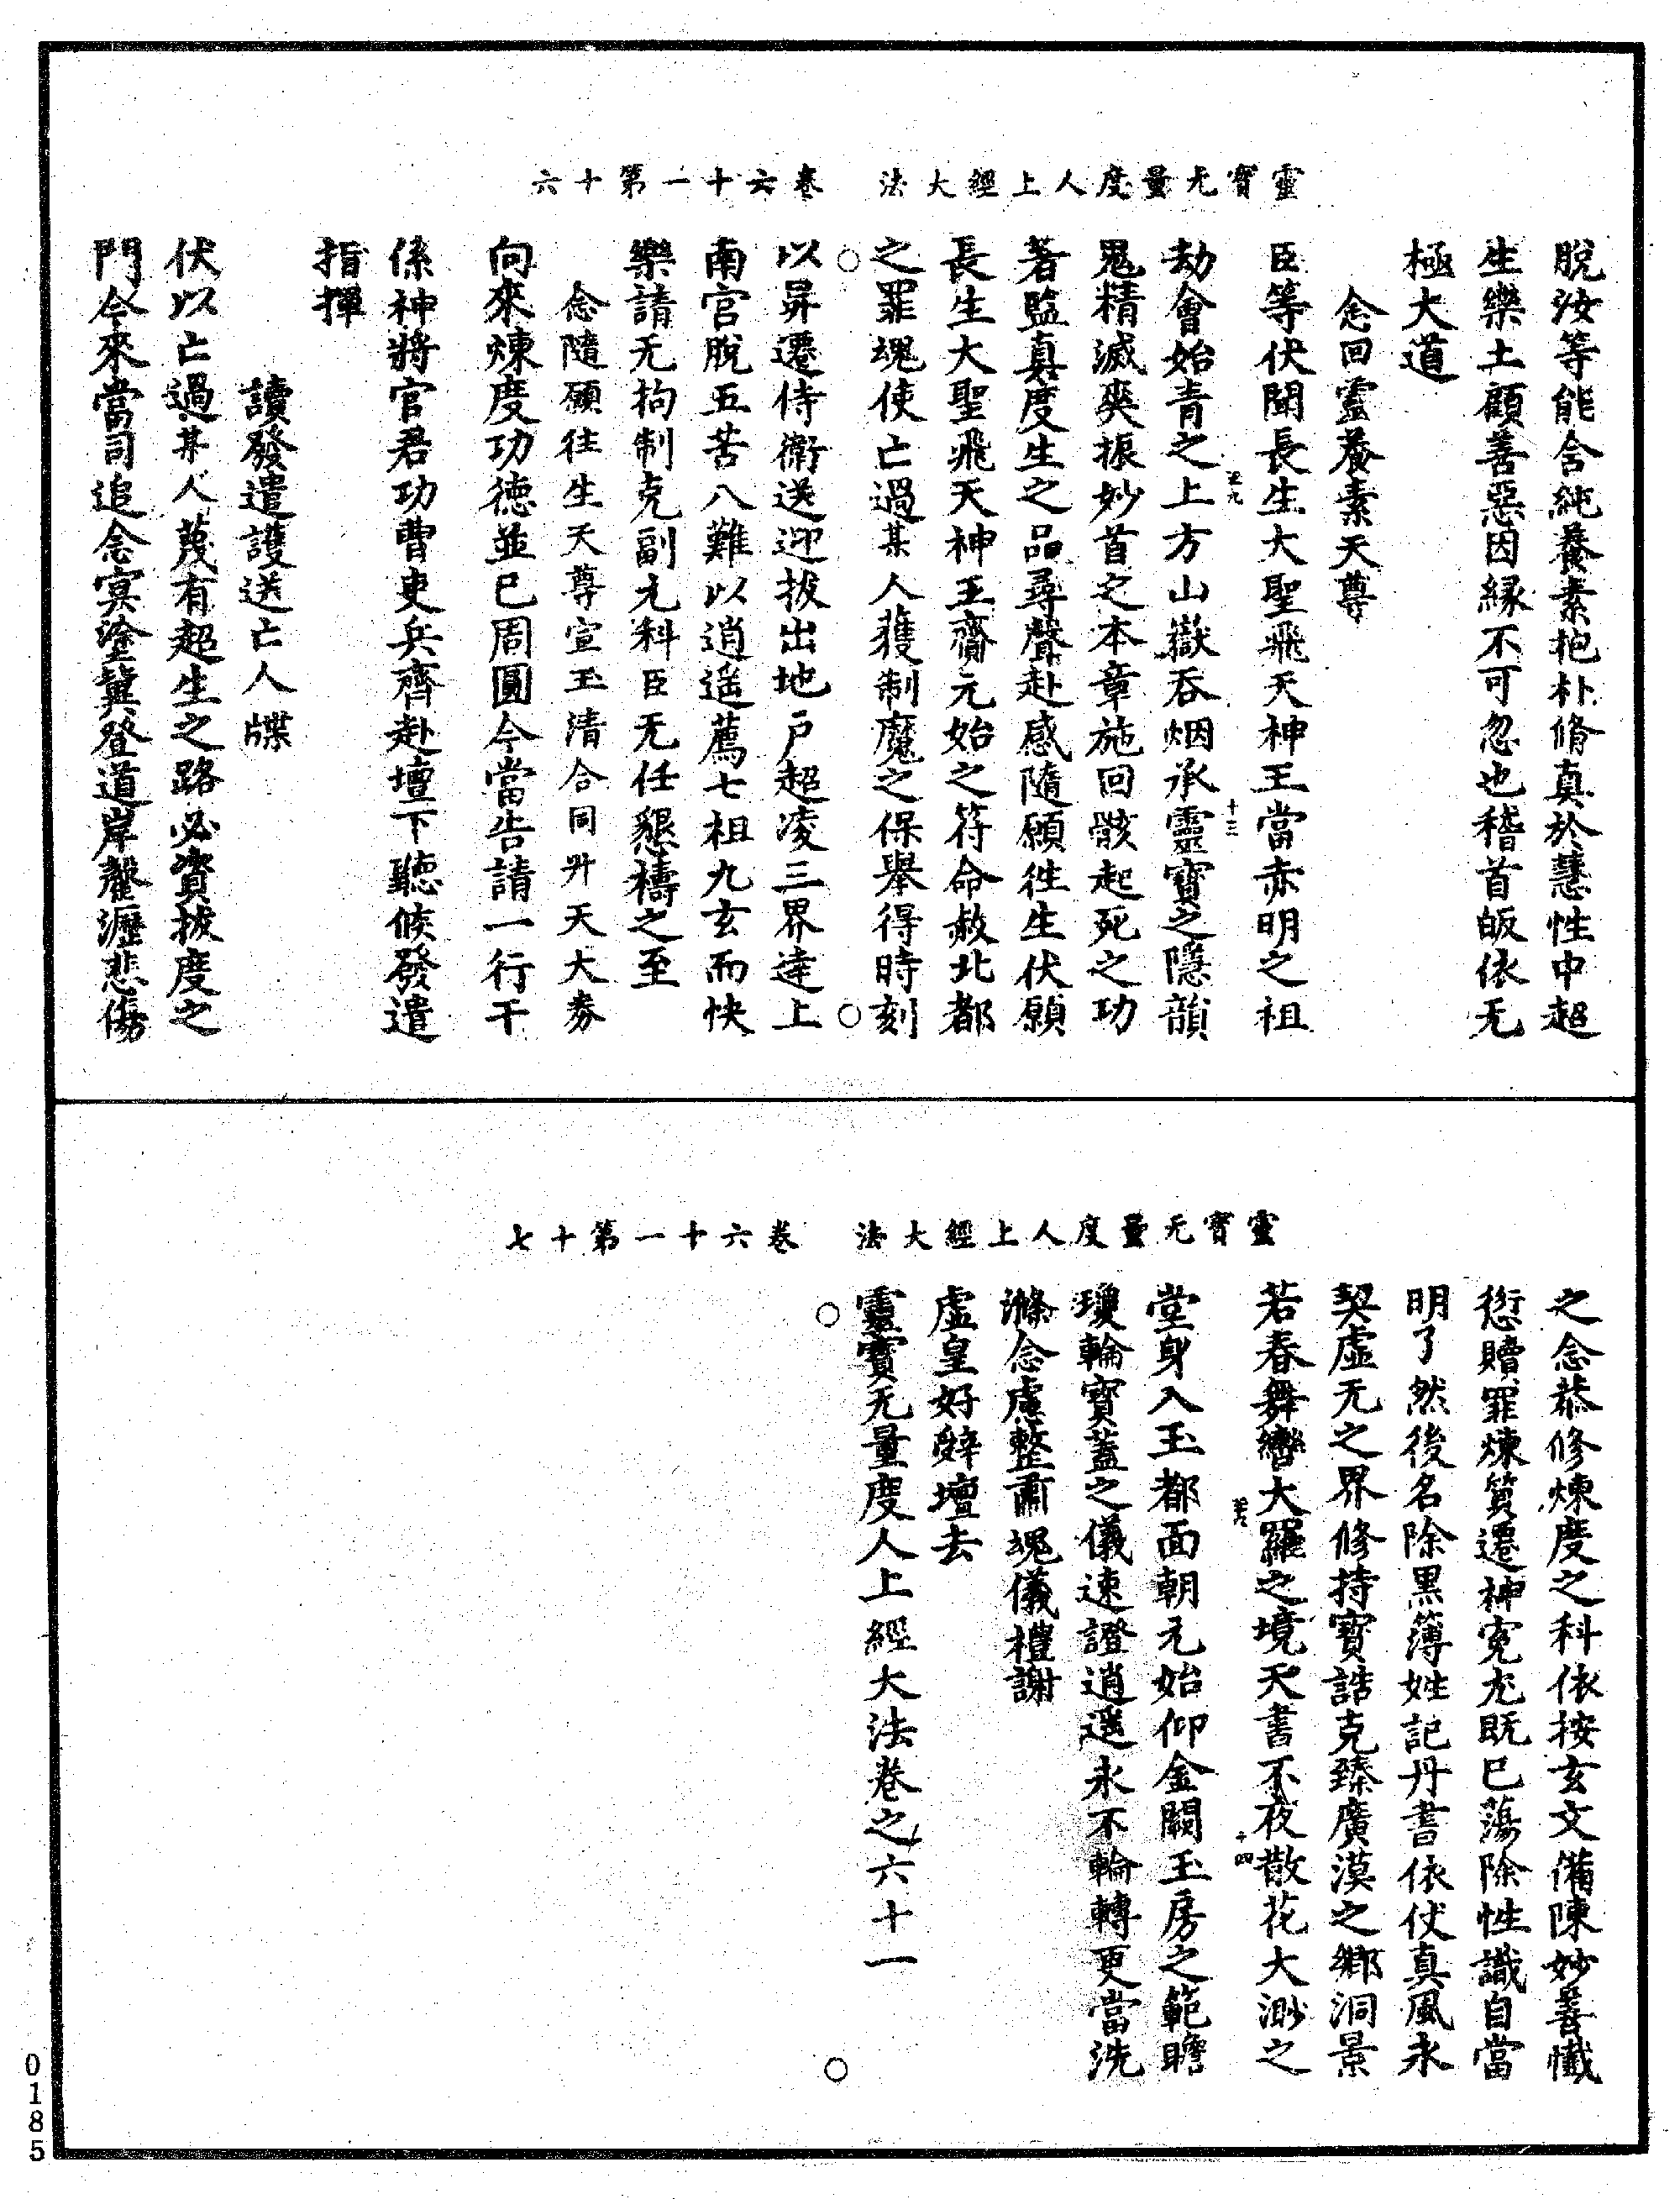 靈寶无量度人上經大法　卷六十一第十六
脫汝等能含純養素抱朴脩真於慧性中超
生樂土顧善惡因緣不可忽也稽首皈依无
極大道
念回靈養素天尊
臣等伏聞長生大聖飛天神王當赤明之祖
十三
劫會始青之上方山嶽吞烟承靈寶之隱韻
鬼精滅爽振妙首之本章施回骸起死之功
著監真度生之品尋聲赴感隨願徃生伏願
長生大聖飛天神王齎元始之符命赦北都
之罪魂使亡過某人獲制魔之保舉得時刻
以昇遷侍衛送迎拔出地户超凌三界逹上
南宫脫五苦八難以逍遥薦七祖九玄而快
樂請无拘制克副元科臣无任懇禱之至
念隨願往生天尊宣玉清合同升天大券
向來煉度功德並已周圓今當告請一行干
係神將官君功曹吏兵齊赴壇下聽候發遣
指揮
讀發遣護送亡人牒
伏以亡過某人蔑有超生之路必資拔度之
門今來當司追念㝠塗冀登道岸罄瀝悲傷
靈寶无量度人上經大法　卷六十一第十七
之念恭修煉度之科依按玄文備陳妙善懺
愆贖罪煉質遷神寃尤既已蕩除性識自當
明了然後名除黑簿姓記丹書依仗真風永
契虛无之界修持寶誥克臻廣漠之鄉洞景
若春舞轡大羅之境天書不夜散花大渺之
十四
堂身入玉都面朝元始仰金闕玉房之範瞻
瓊輪寶蓋之儀速證逍遥永不輪轉更當洗
滌念慮整肅魂儀禮謝
虛皇好辤壇去
靈寶无量度人上經大法卷之六十一
0185